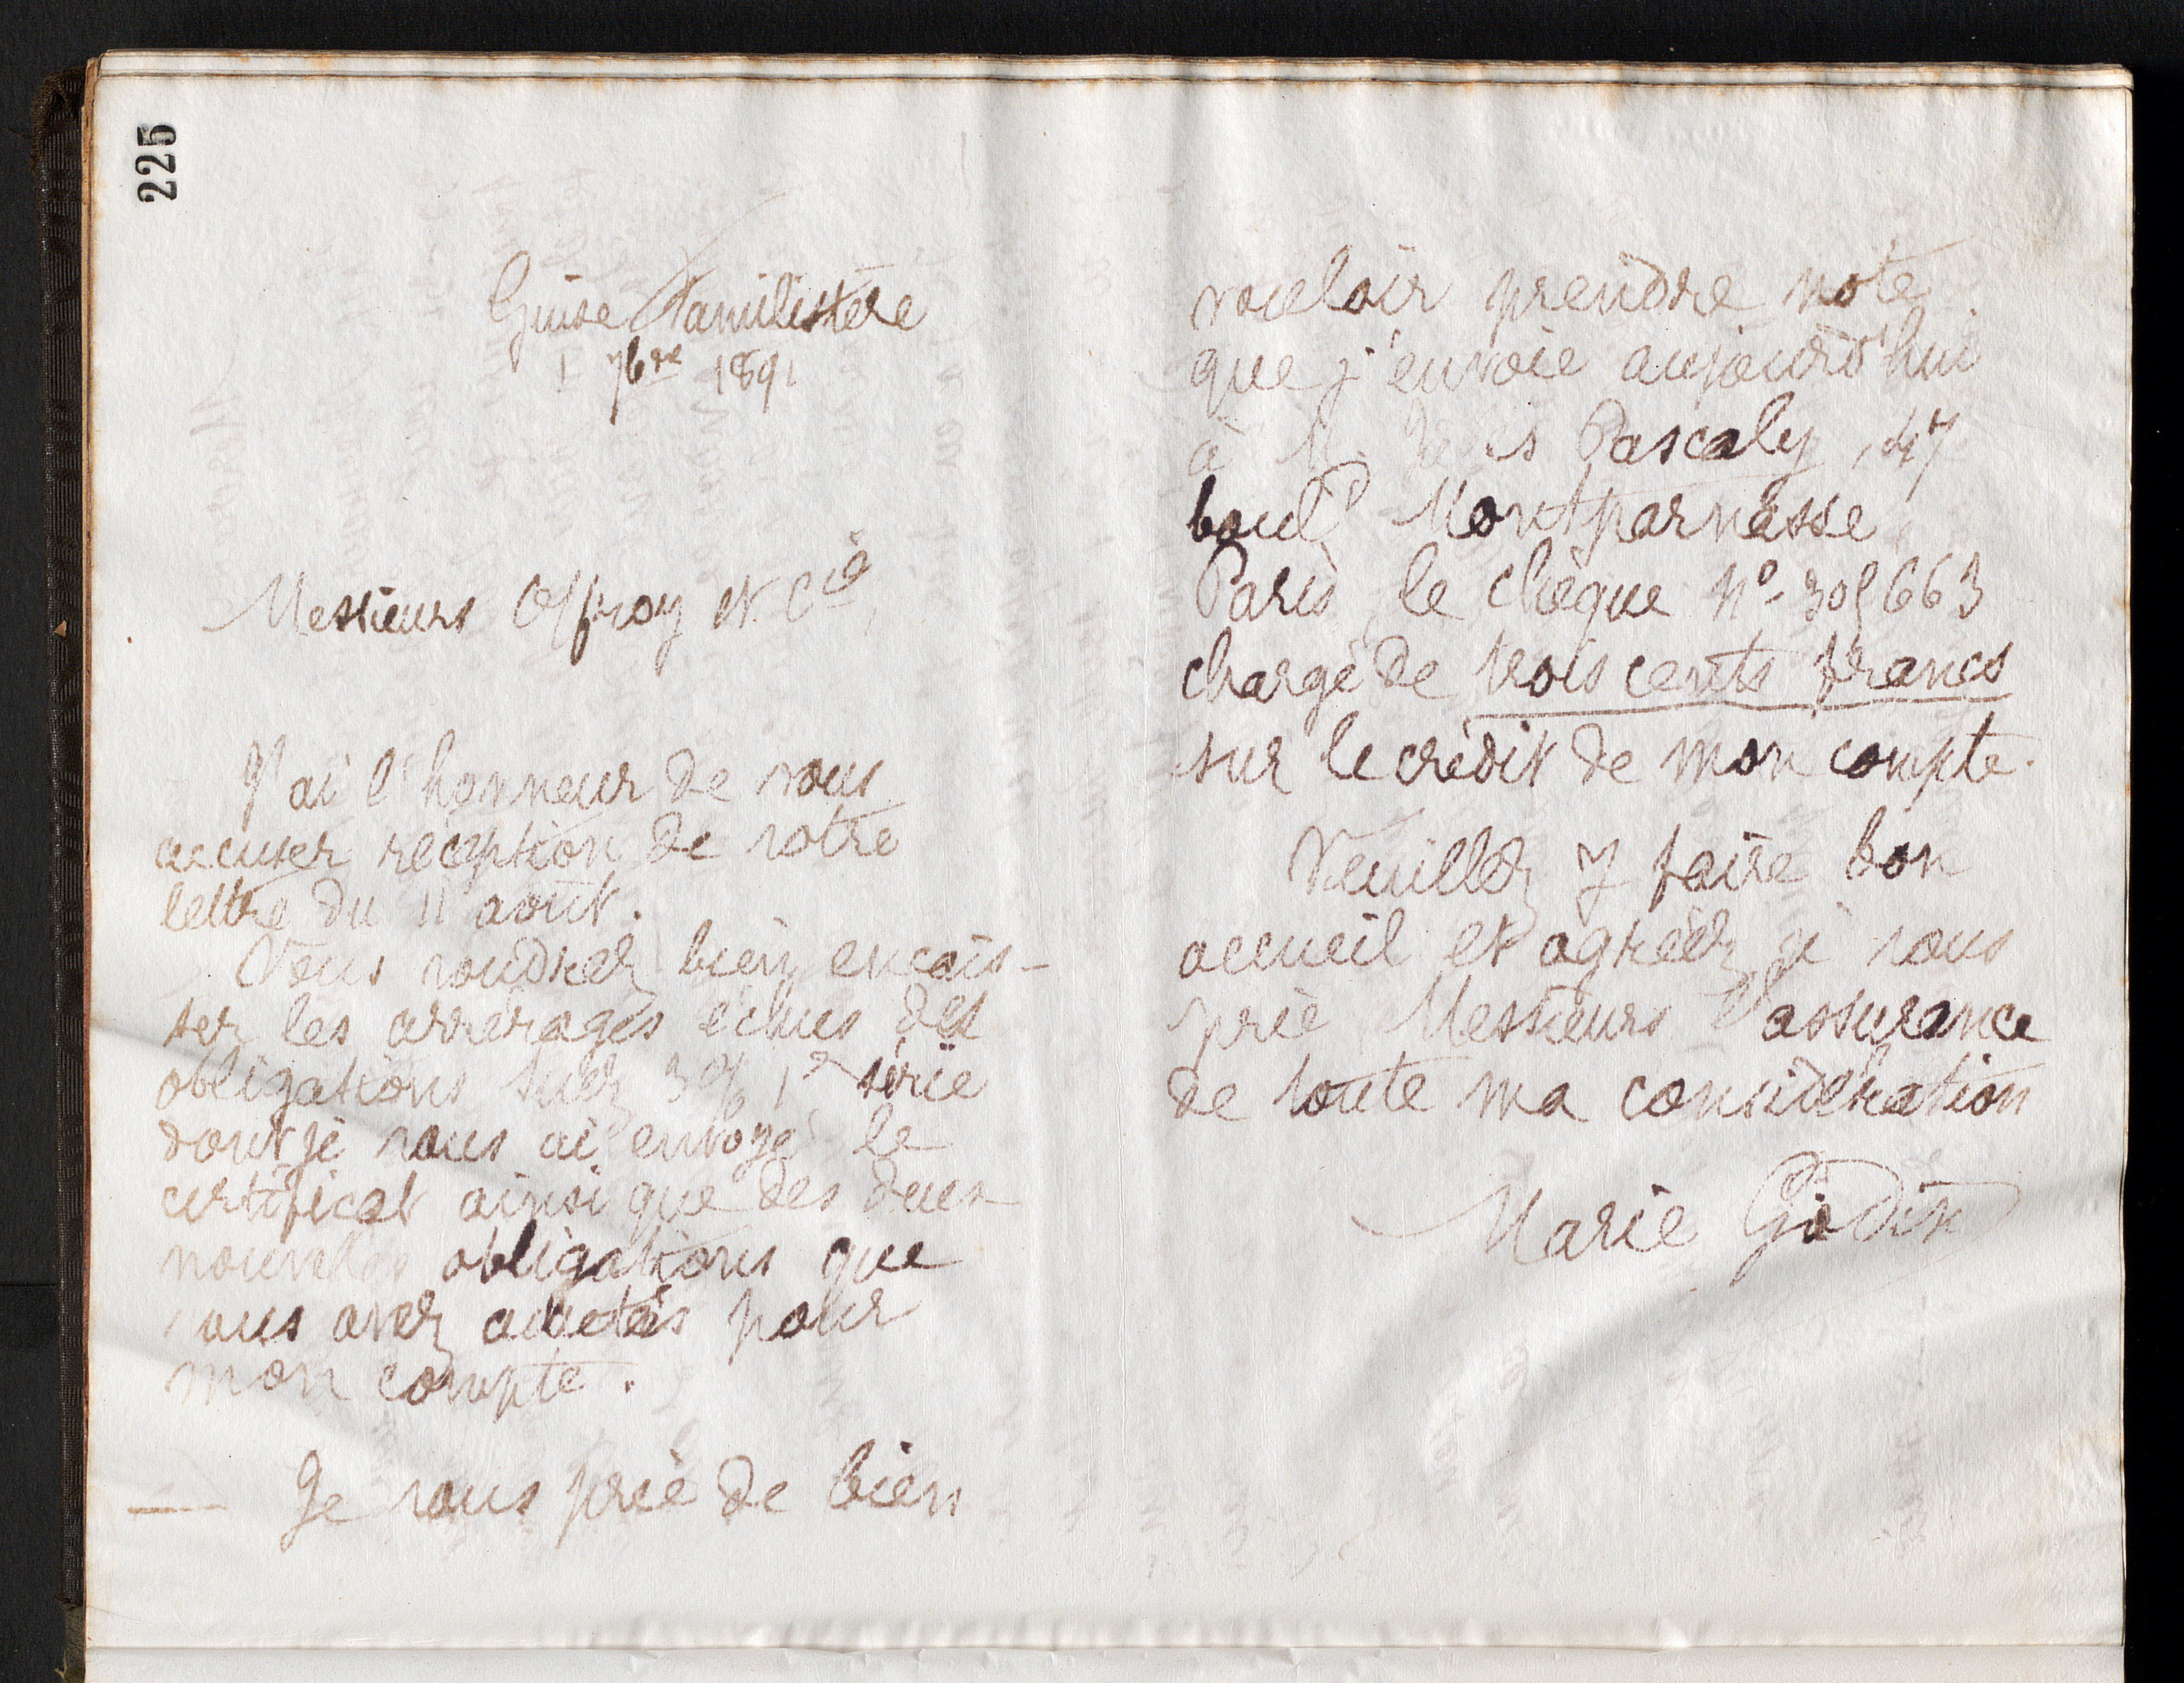 225
Guise Familistère
1 7bre 1891
Messieurs Offroy et Cie,
J'ai l'honneur de vous
accuser réception de votre
lettre du 11 août.
Vous voudrez bien encais-
ser les arrérages échus des
obligations Suez 3% 1e série
dont je vous ai envoyé le
certificat ainsi que des deux
nouvelles obligations que
vous avez achetées pour
mon compte.
Je vous prie de bien
vouloir prendre note
que j'envoie aujourd'hui
à M. Pascaly, 47
bould Montparnasse,
Paris, le chèque No
chargé de trois cents francs
sur le crédit de mon compte.
Veuillez y faire bon
accueil et agréer, je vous
prie, Messieurs l'assurance
de toute ma considération
Marie Godin